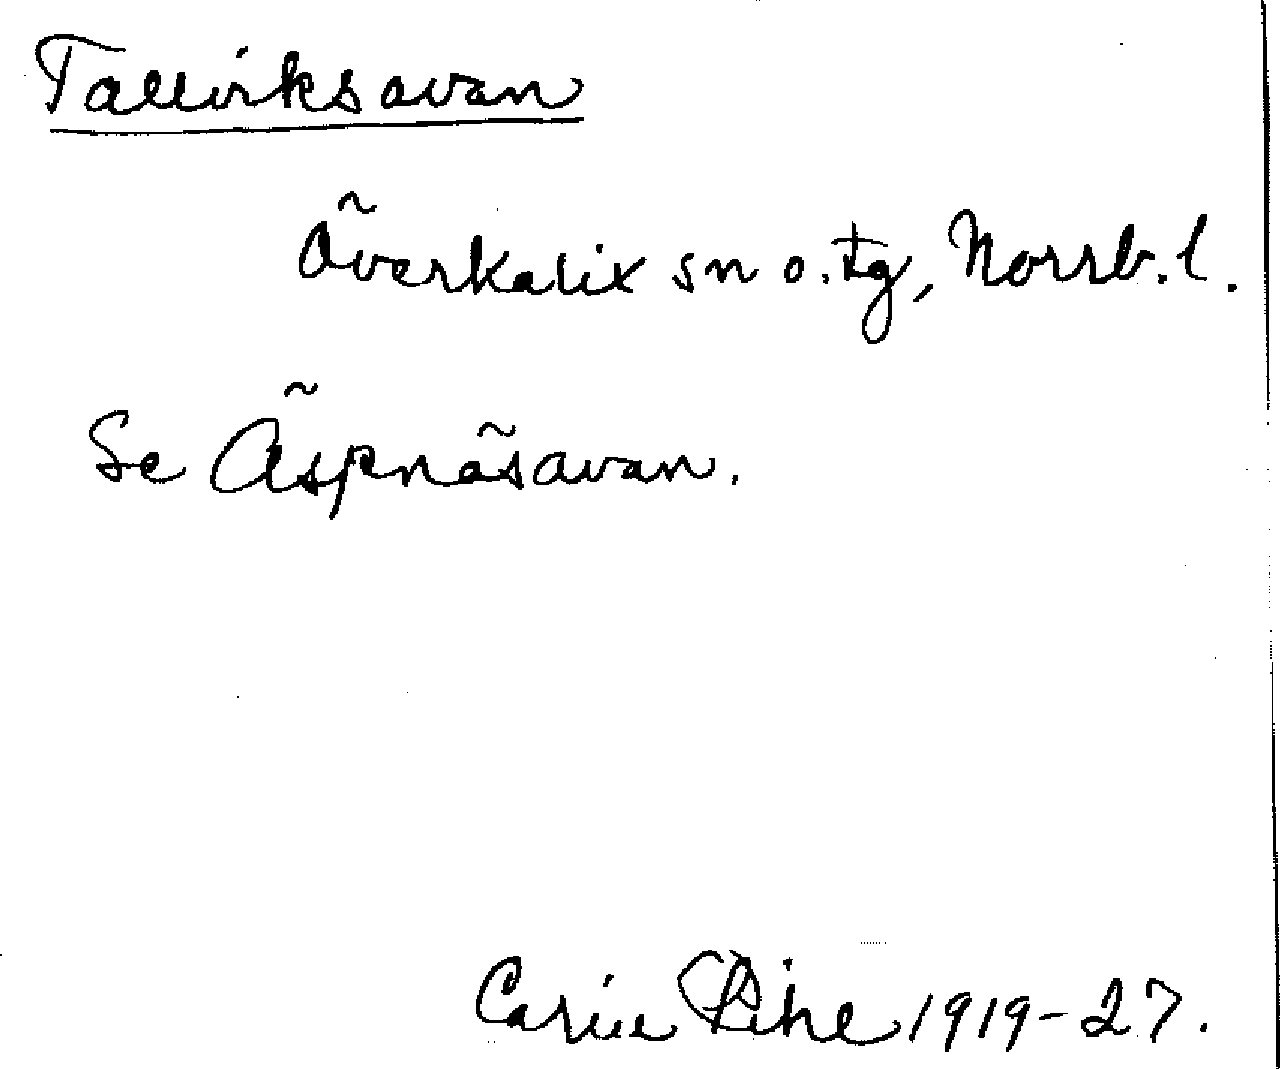 Tallviksavan
Överkalix sn o. tg, Norrb. l.
Se Äspnäsavan.
Carin Pihl 1919-27.